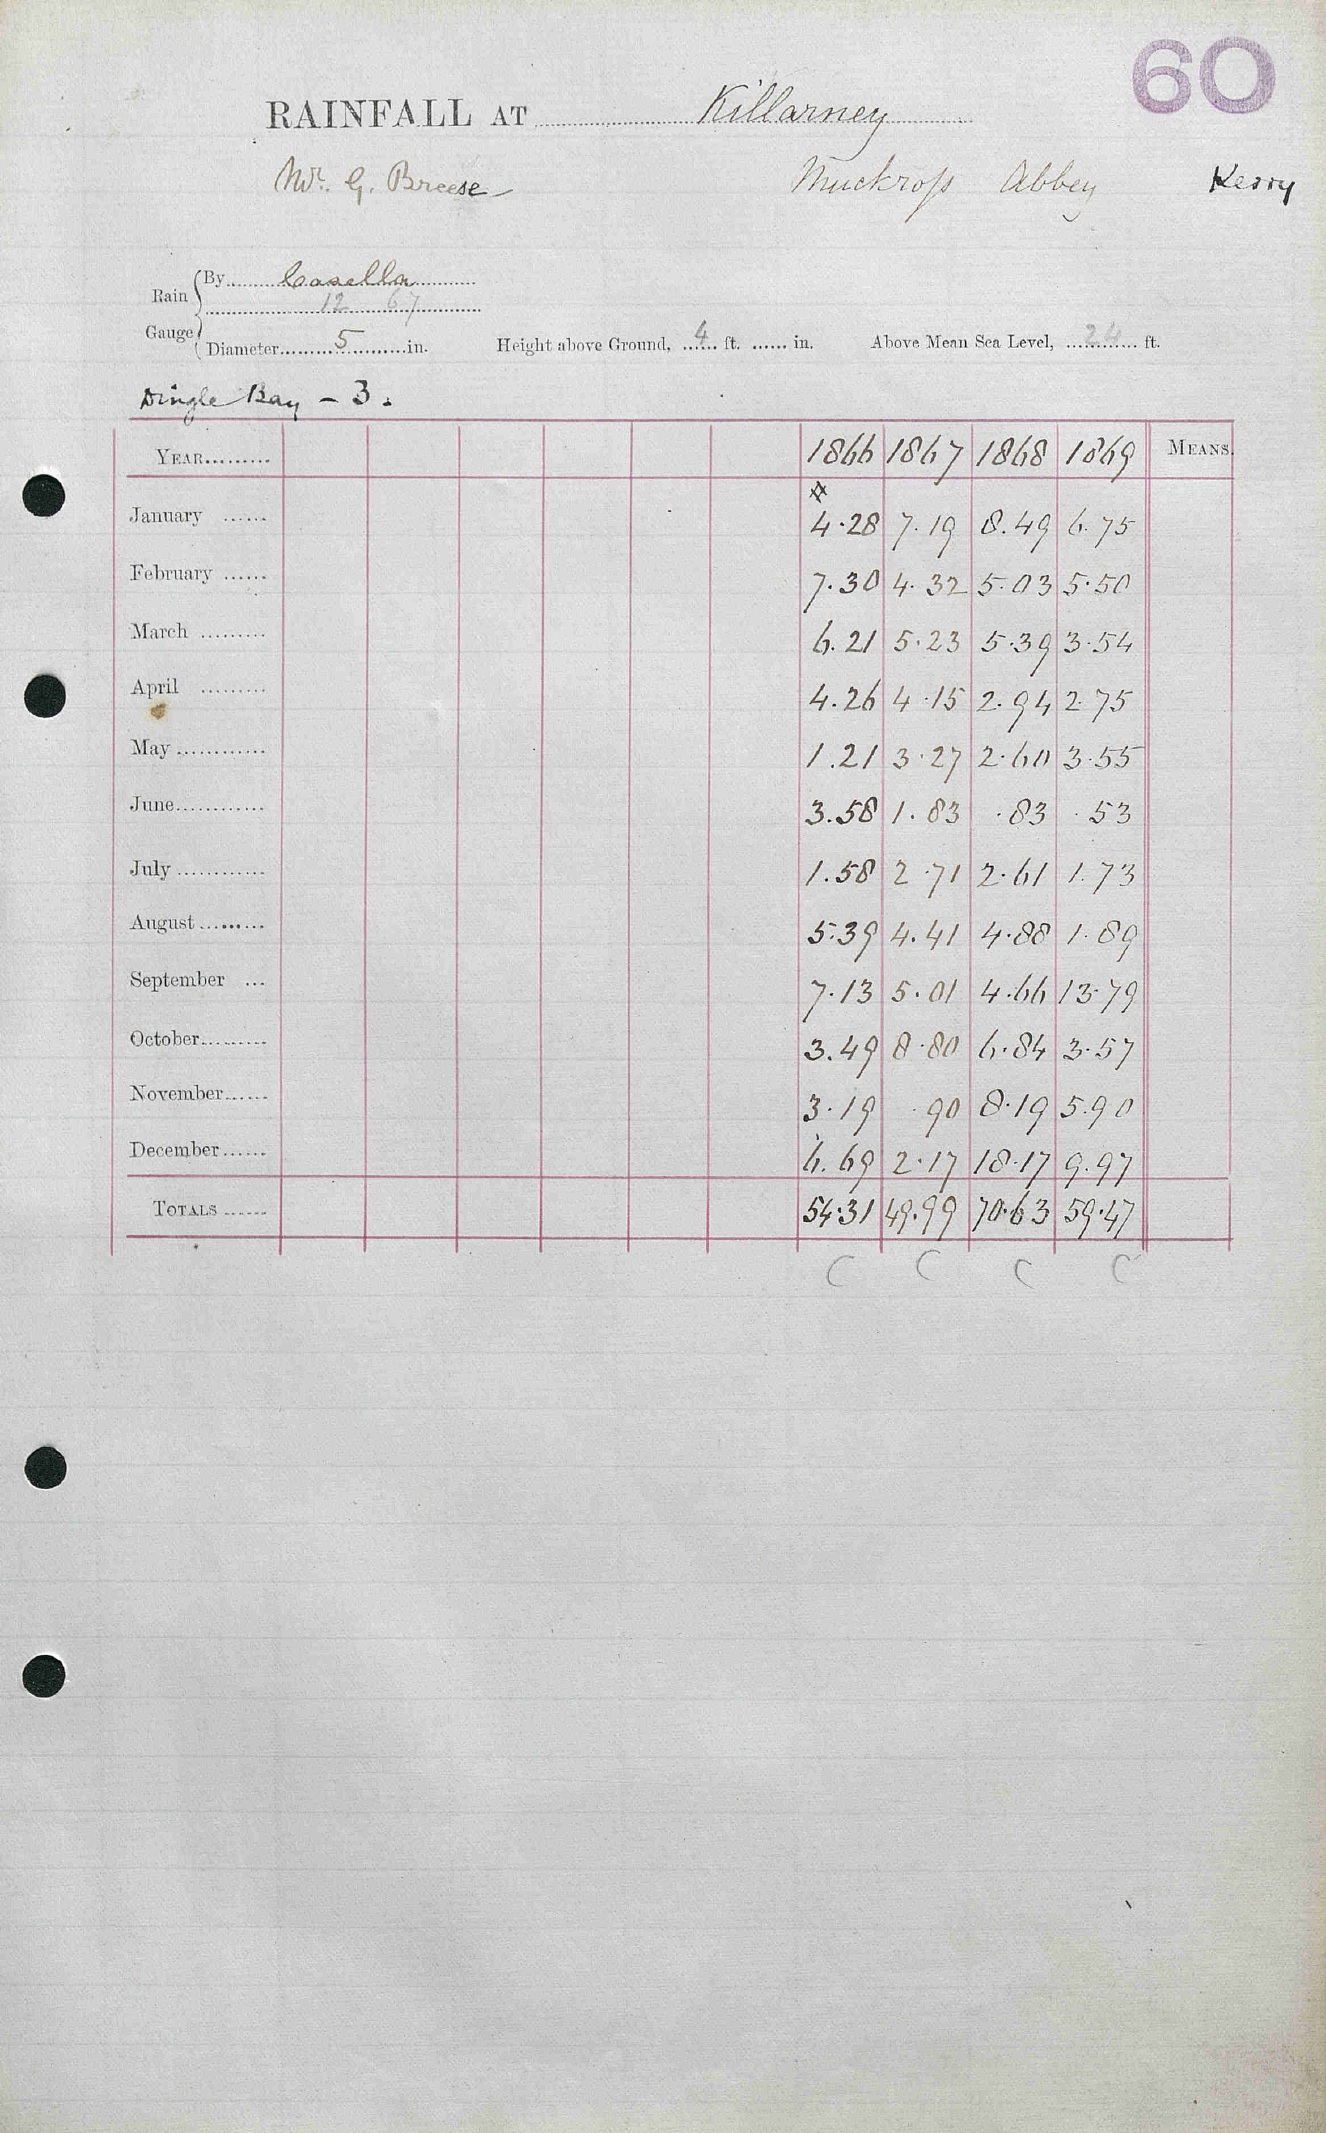 60
RAINFALL AT Killarney
Mr. G. Breese Muckross Abbey Kerry
Rain Gauge
By Casella
12 67
Diameter 5 in. Height above Ground, 4 ft. in. Above Mean Sea Level, 24 ft.
Dingle Bay - 3.
YEAR 1866 1867 1868 1869 MEANS.
January 4.28 7.19 8.49 6.75
February 7.30 4.32 5.03 5.50
March 6.21 5.23 5.39 3.54
April 4.26 4.15 2.94 2.75
May 1.21 3.27 2.60 3.55
June 3.58 1.83 .83 .53
July 1.58 2.71 2.61 1.73
August 5.39 4.41 4.88 1.89
September 7.13 5.01 4.66 13.79
October 3.49 8.80 6.84 3.57
November 3.19 .90 8.19 5.90
December 6.69 2.17 18.17 9.97
TOTALS 54.31 49.99 70.63 59.47
C C C C